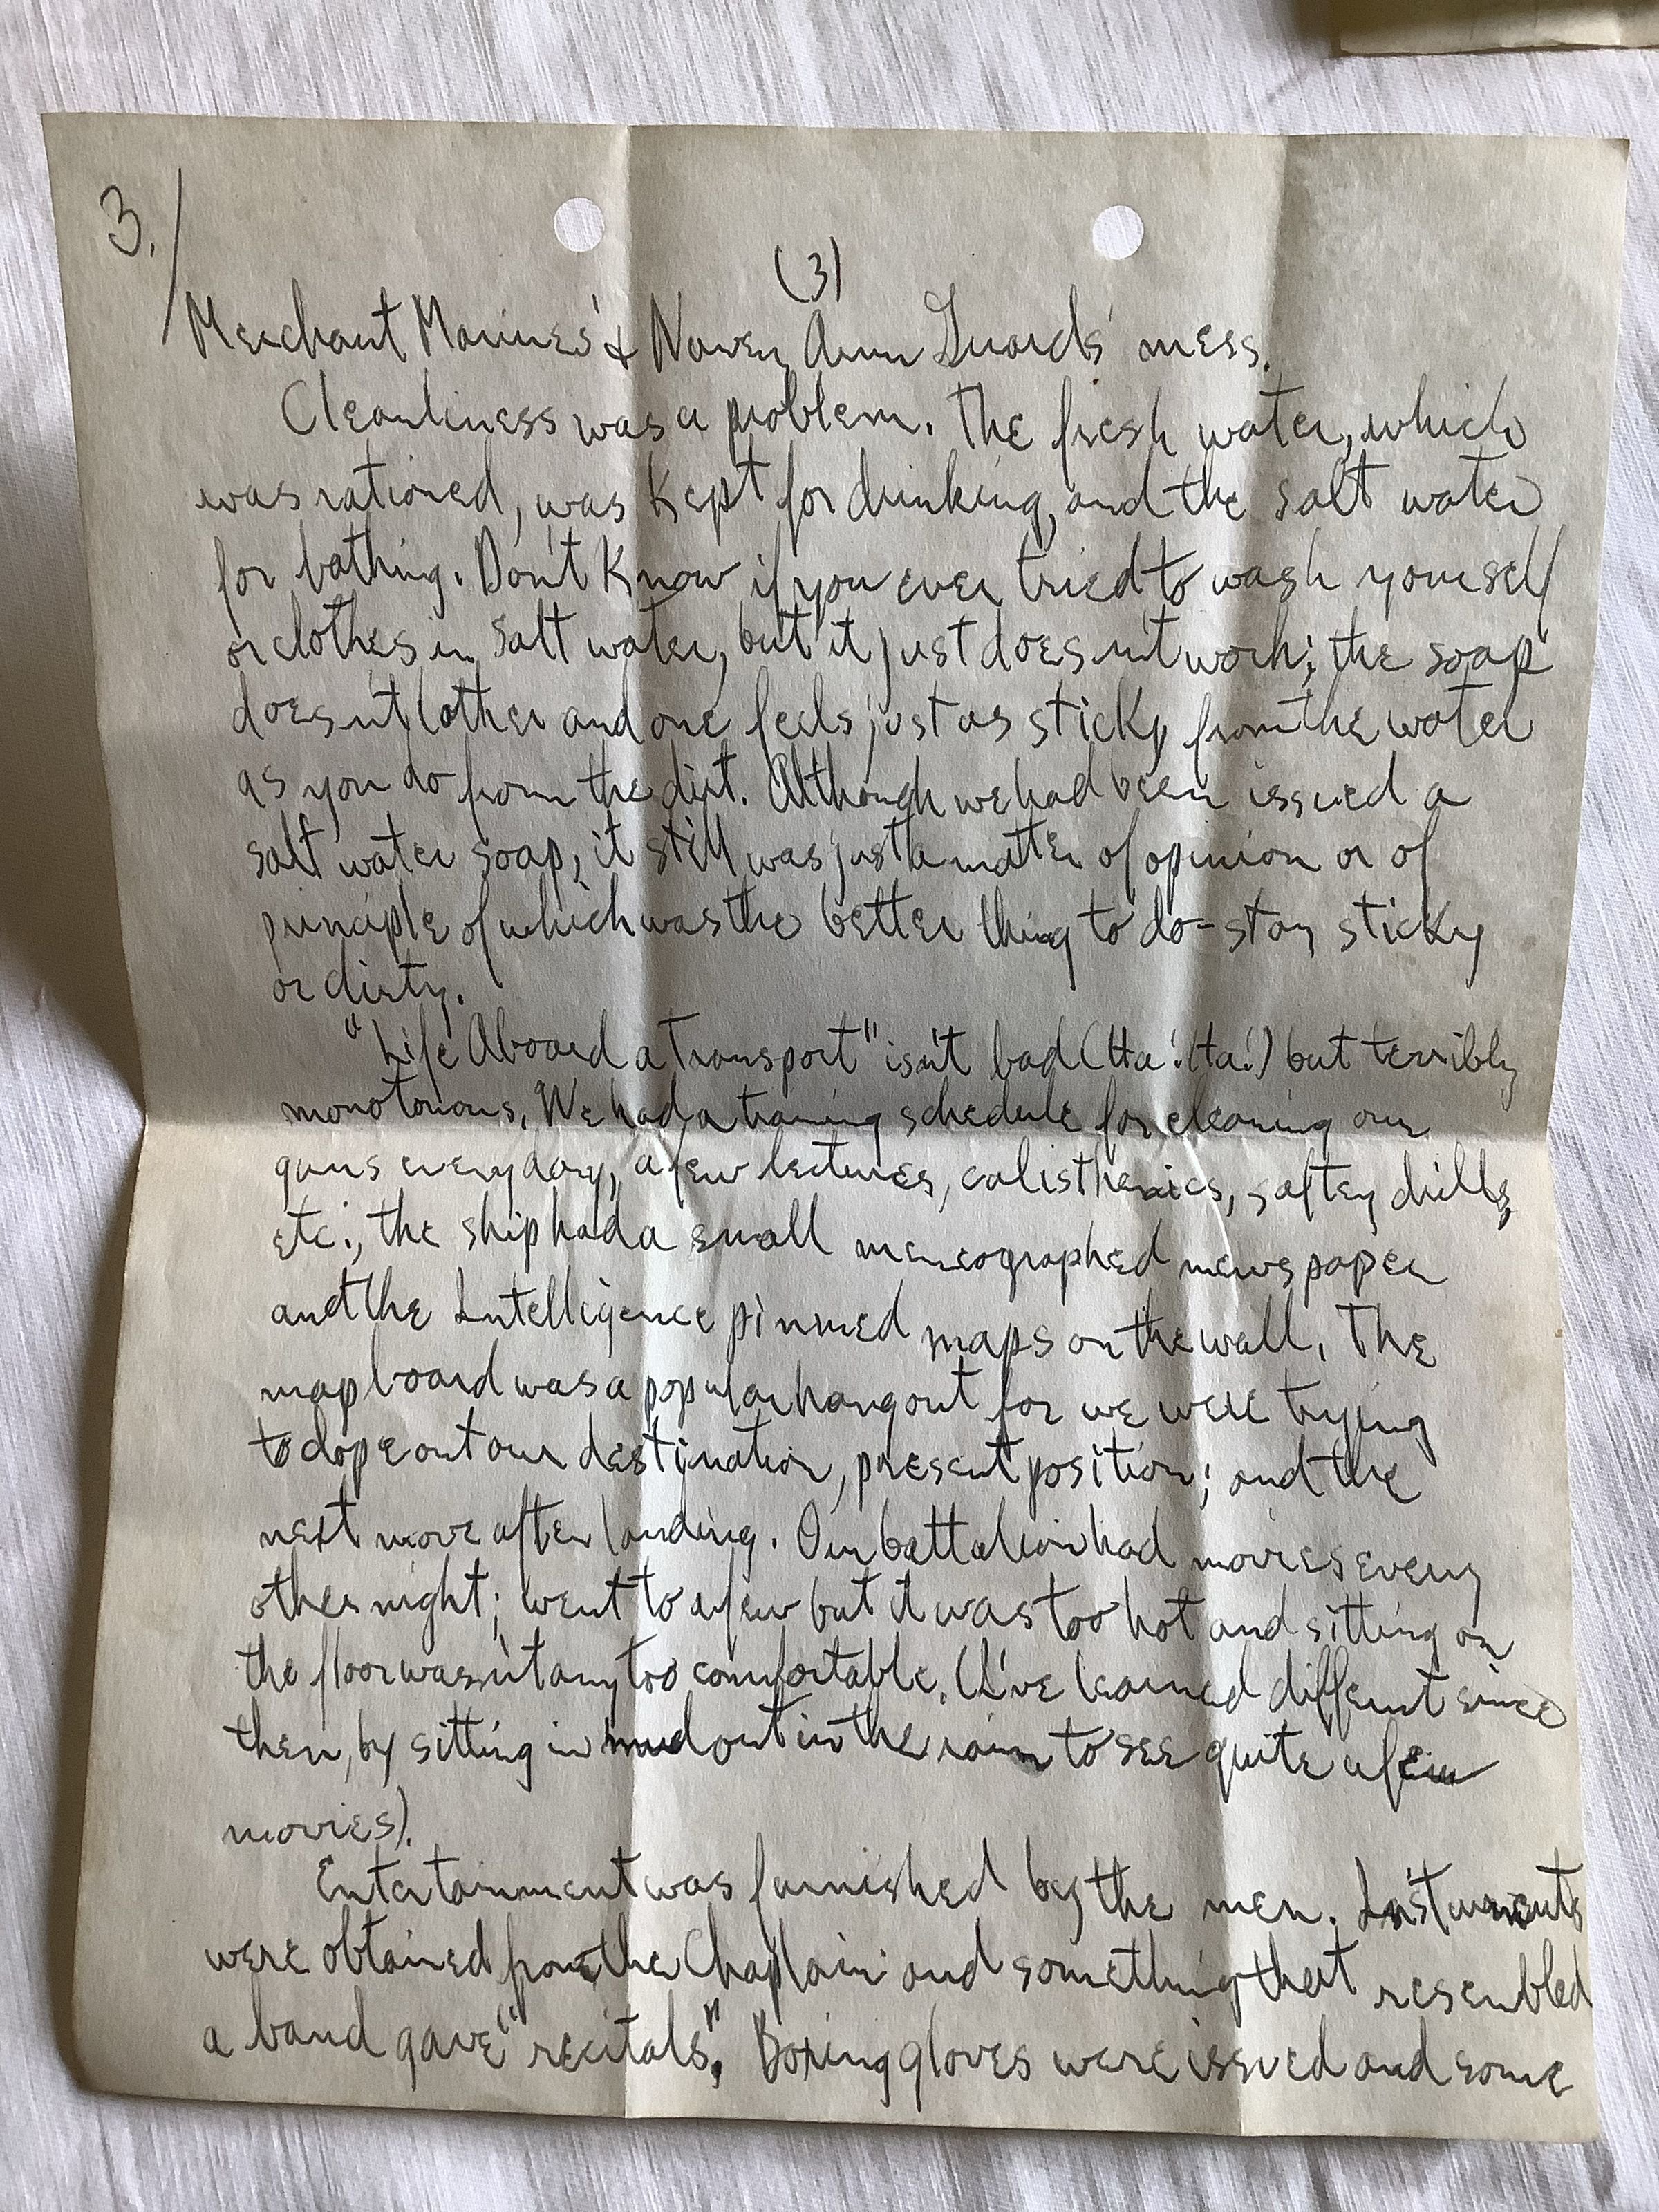 3./
(3)
Merchant Marines' & Navy Arm Guards' mess.
Cleanliness was a problem. The fresh water, which
was rationed, was kept for drinking, and the salt water
for bathing. Don't know if you ever tried to wash yourself
or clothes in salt water, but it just doesn't work; the soap
doesn't lather and one feels just as sticky from the water
as you do from the dirt. Although we had been issued a
salt water soap, it still was just a matter of opinion or of
principle of which was the better thing to do - stay sticky
or dirty.
"Life Aboard a Transport" isn't bad (Ha! Ha!) but terribly
monotonous. We had a training schedule for cleaning our
guns everyday, a few lectures, calisthenics, saftey drills,
etc.; the ship had a small memeographed newspaper
and the Intelligence pinned maps on the wall. The
map board was a popular hangout for we were trying
to dope out our destination, present position; and the
next move after landing. Our battalion had movies every
other night; went to a few but it was too hot and sitting on
the floor wasn't any too comfortable. (I've learned different since
then, by sitting in mud out in the rain to see quite a few
movies).
Entertainment was furnished by the men. Instruments
were obtained from the Chaplain and something that resembled
a band gave "recitals". Boxing gloves were issued and some